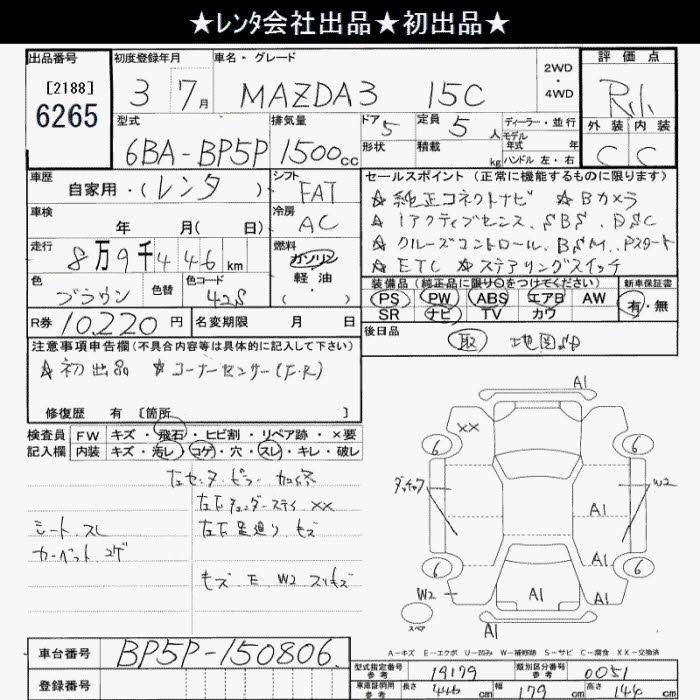 ★ﾚﾝﾀ会社出品★初出品★
出品番号
[2188]
6265
初度登録年月
3 7月
車名・グレード
MAZDA3 15C
2WD
・
4WD
評価点
R1
外装 内装
C C
型式
6BA-BP5P
排気量
1500cc
ドア 5
形状
定員 5人
積載 kg
ディーラー・並行
モデル
年式 年
ハンドル 左・右
車歴
自家用・(レンタ)
シフト
FAT
車検
年 月( 日)
冷房
AC
走行
8万9千446km
燃料
ガソリン
軽油
( ・ )
色
ブラウン
色替
色コード
42S
R券 10,220円
名変期限 月 日
セールスポイント (正常に機能するものに限ります)
☆純正コネクトナビ ☆Bカメラ
☆iアクティブセンス、SBS、DSC
☆クルーズコントロール、BSM、Pスタート
☆ETC ☆ステアリングスイッチ
装備品(純正品に限り○をつけてください)
PS PW ABS エアB AW
SR ナビ TV カワ
新車保証書
有・無
後日品
取 地図SD
注意事項申告欄(不具合内容等は具体的に記入して下さい)
☆初出品 ☆コーナーセンサー(F.R)
修復歴 有 [箇所 ]
検査員
記入欄
FW キズ・飛石・ヒビ割・リペア跡・×要
内装 キズ・汚レ・コゲ・穴・スレ・キレ・破レ
左センターピラー
XX
左下足廻り キズ
シート スレ
カーペット コゲ
キズ E W2 スリキズ
A1
XX
6
6
W2
A1
A1
6
6
W2
A1
A1
A1
スペア
A-キズ E-エクボ U-凹み W-補修跡 S-サビ C-腐食 XX-交換済
車台番号 BP5P-150806
登録番号
型式指定番号
参考
19179
類別区分番号
参考
0051
車庫証明用
参考
長さ 446cm
幅 179cm
高さ 144cm